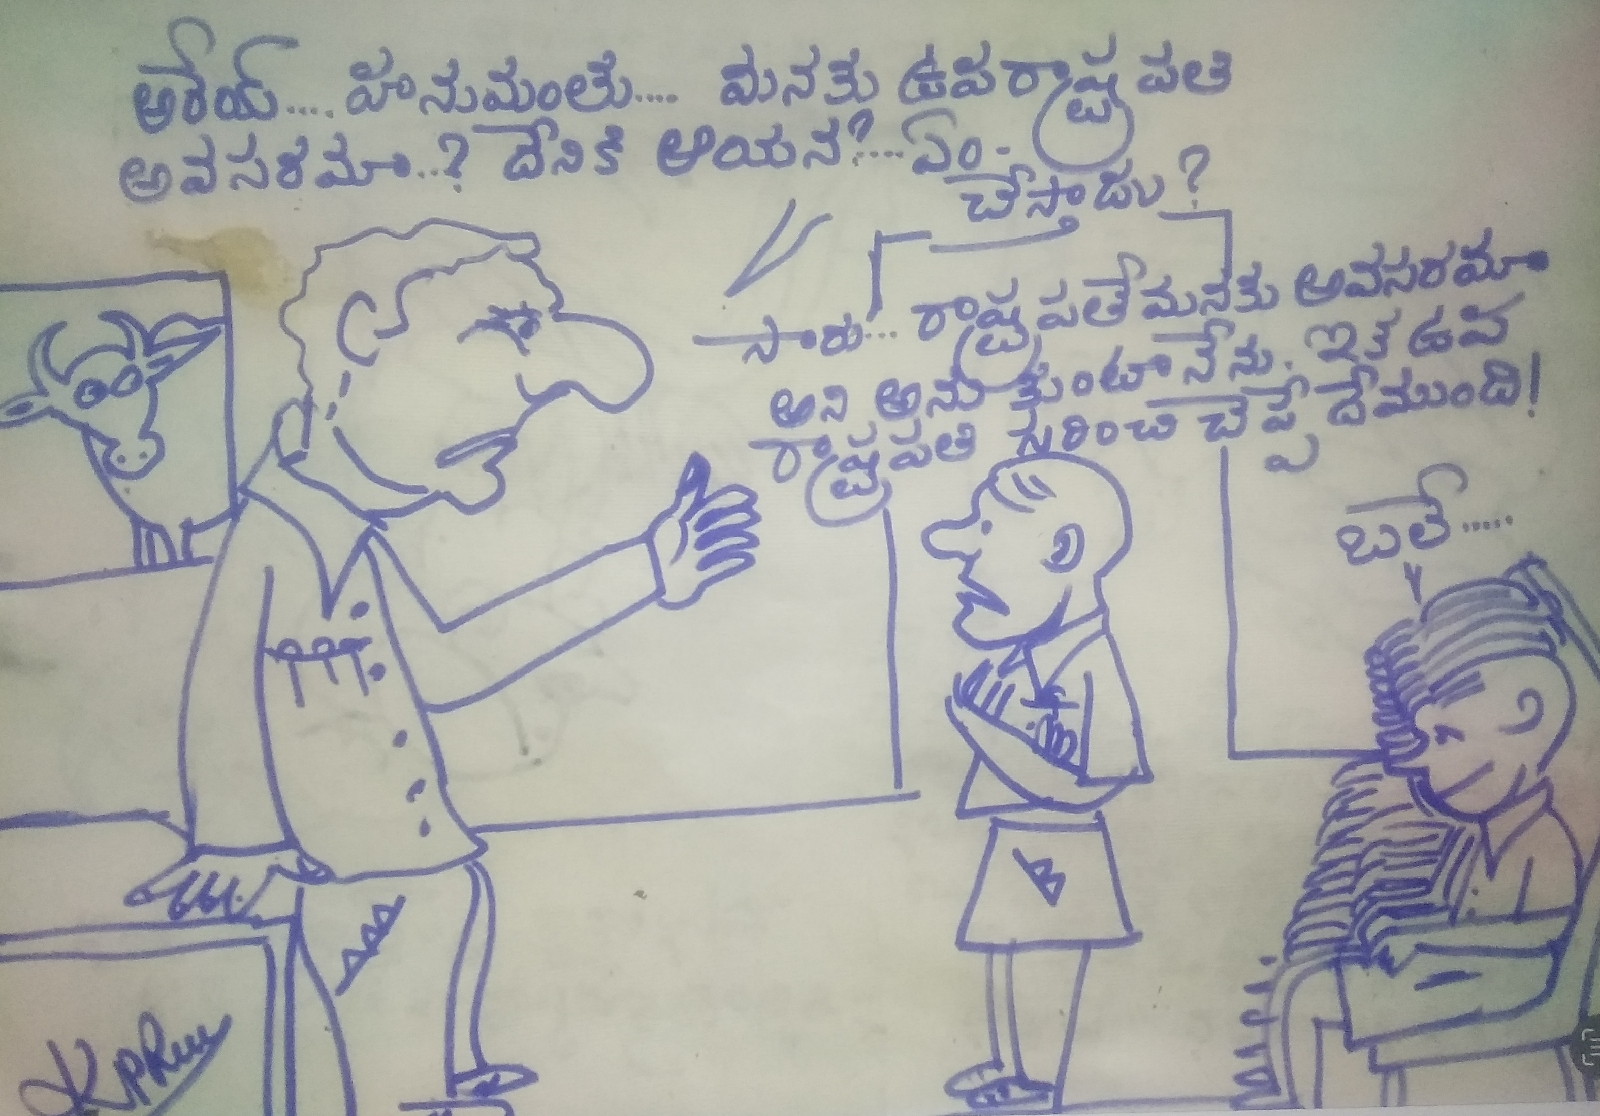 అరేయ్.... హనుమంతు.... మనకు ఉపరాష్ట్రపతి
అవసరమా..? దేనికి ఆయన?.... ఏం-
చేస్తాడు?
సారు... రాష్ట్రపతే మనకు అవసరమా
అని అనుకుంటూ నేను. ఇక ఉప
రాష్ట్రపతి గురించి చెప్పేదేముంది!
బలే.....
B